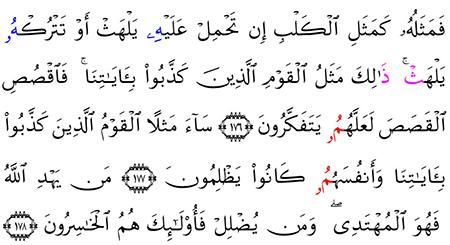 فَمَثَلُهُۥ كَمَثَلِ ٱلْكَلْبِ إِن تَحْمِلْ عَلَيْهِۦ يَلْهَثْ أَوْ تَتْرُكْهُۥ
يَلْهَثْ ۚ ذَٰلِكَ مَثَلُ ٱلْقَوْمِ ٱلَّذِينَ كَذَّبُوا۟ بِـَٔايَـٰتِنَا ۚ فَٱقْصُصِ
ٱلْقَصَصَ لَعَلَّهُمُۥ يَتَفَكَّرُونَ ﴿١٧٦﴾ سَآءَ مَثَلًا ٱلْقَوْمُ ٱلَّذِينَ كَذَّبُوا۟
بِـَٔايَـٰتِنَا وَأَنفُسَهُمُۥ كَانُوا۟ يَظْلِمُونَ ﴿١٧٧﴾ مَن يَهْدِ ٱللَّهُ
فَهُوَ ٱلْمُهْتَدِى ۖ وَمَن يُضْلِلْ فَأُو۟لَـٰٓئِكَ هُمُ ٱلْخَـٰسِرُونَ ﴿١٧٨﴾